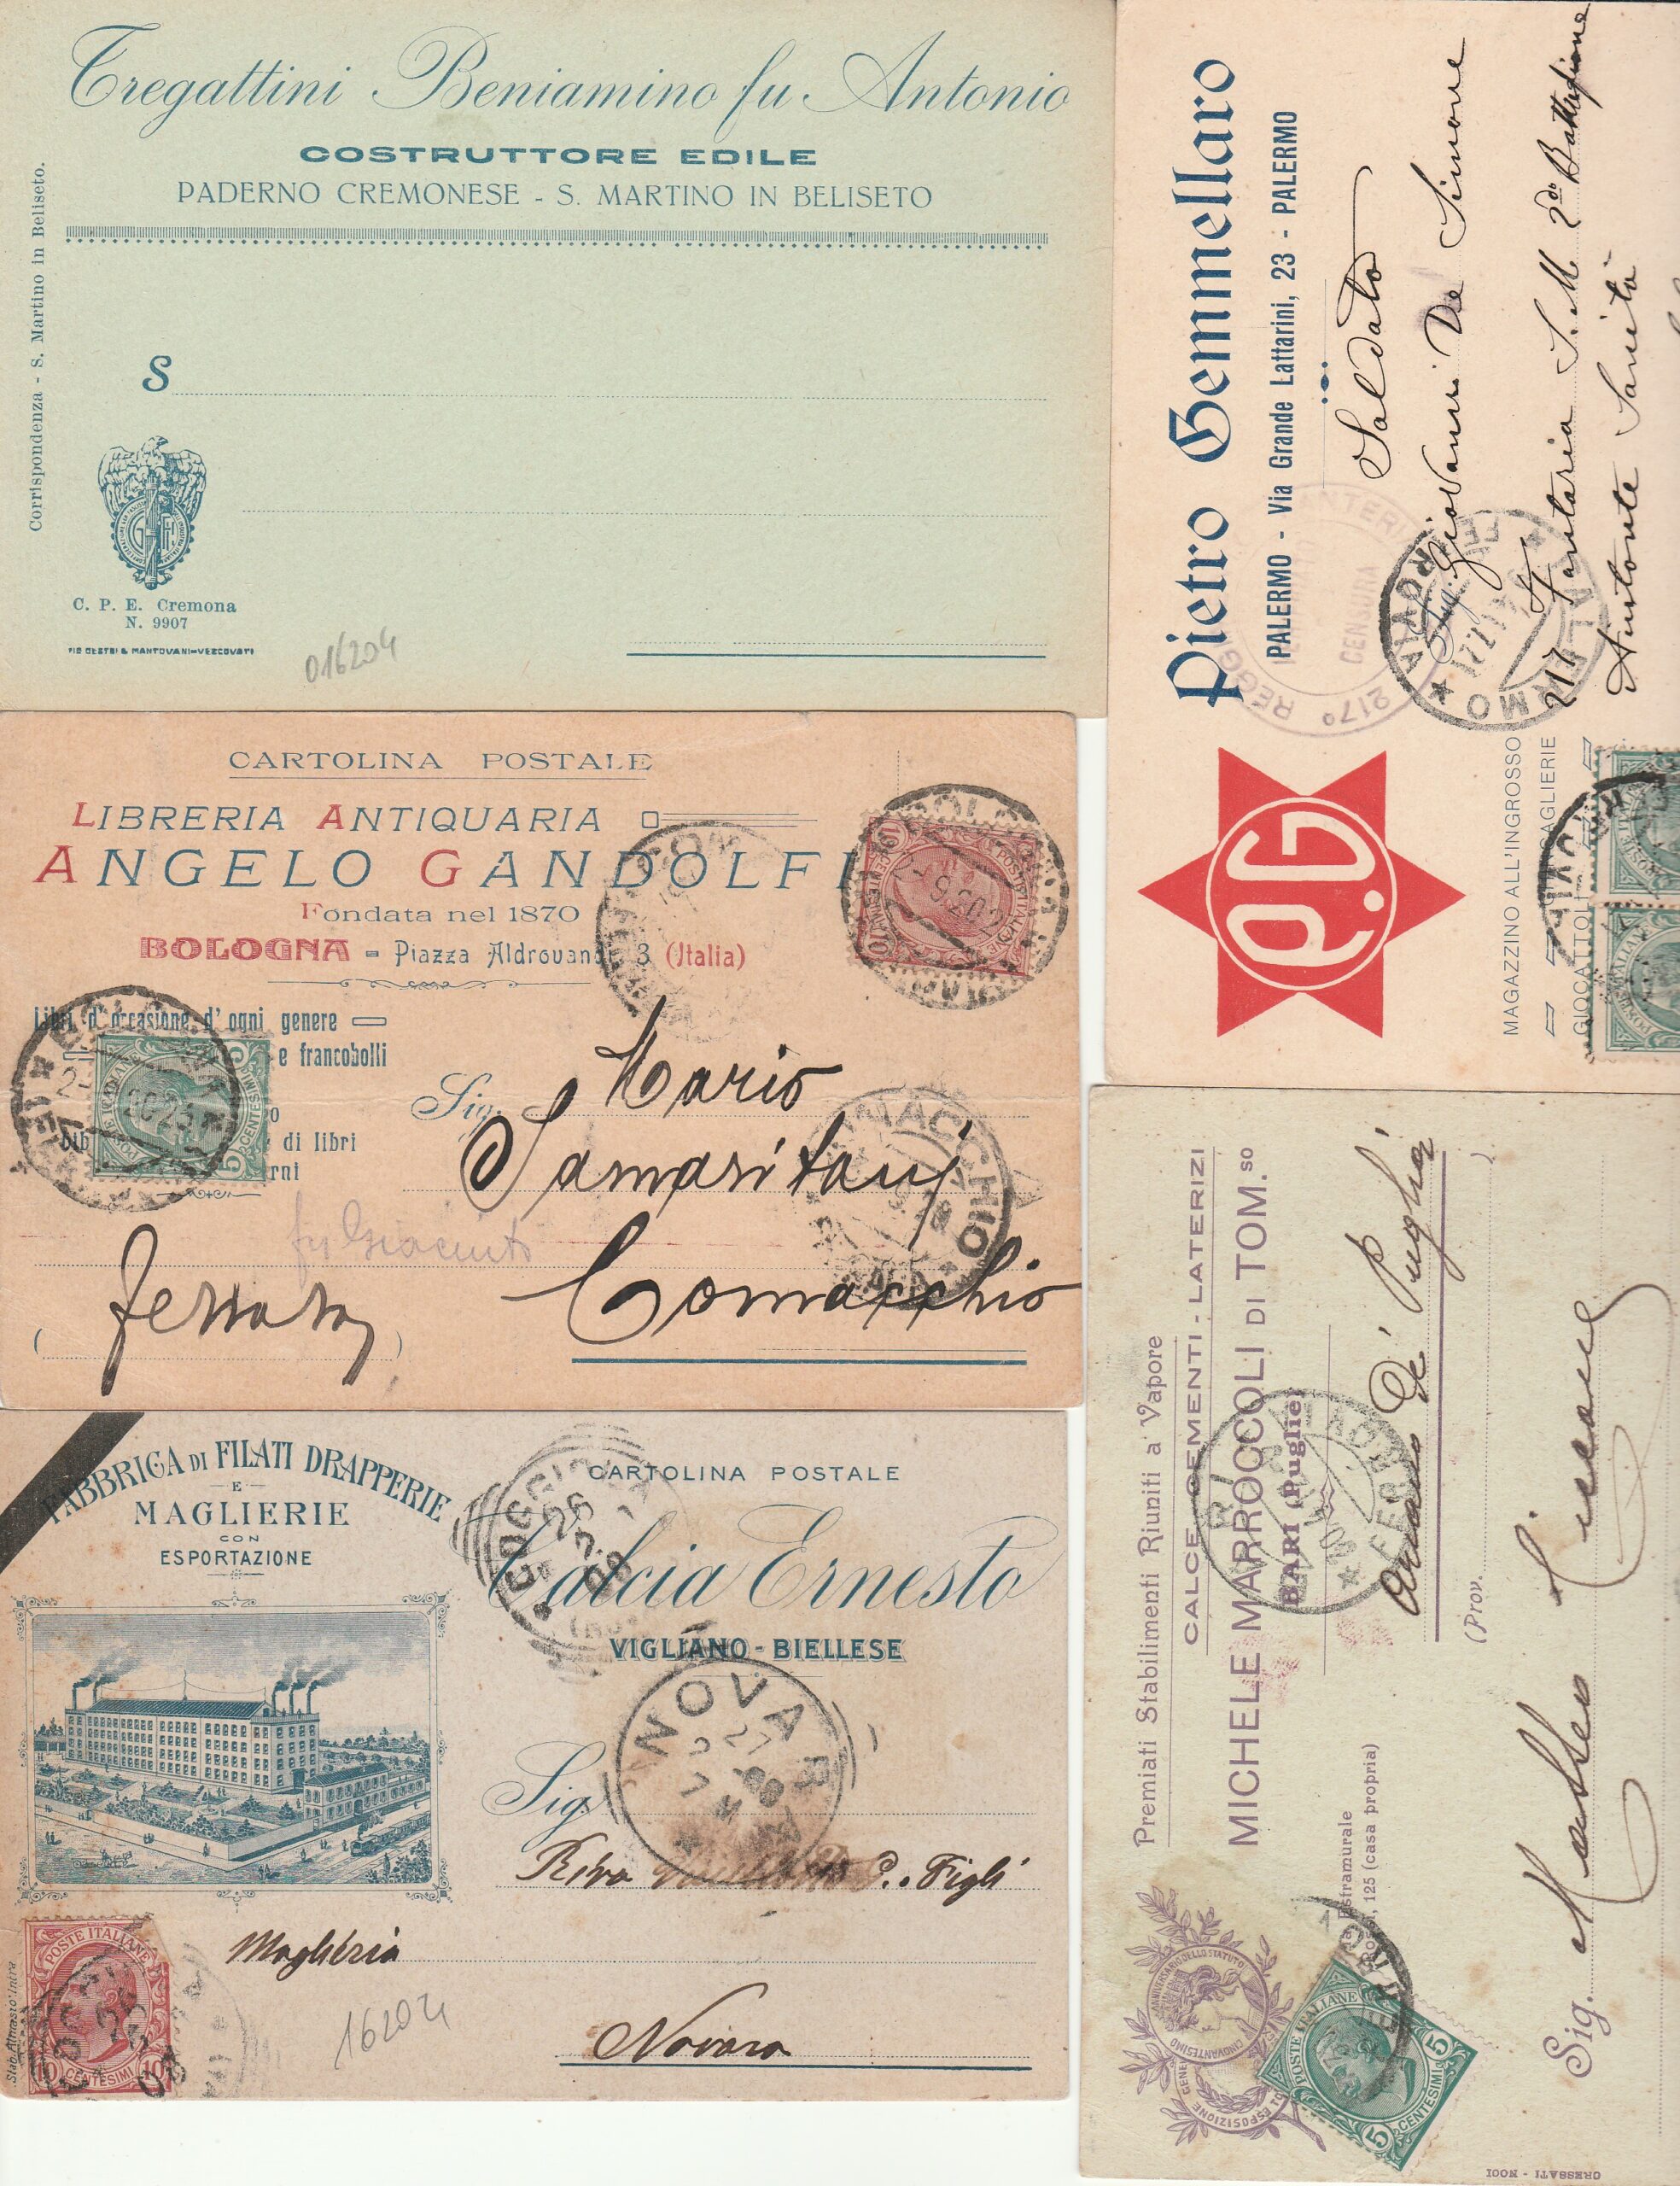 Tregattini Beniamino fu Antonio
COSTRUTTORE EDILE
PADERNO CREMONESE - S. MARTINO IN BELISETO
Corrispondenza - S. Martino in Beliseto.
S
C. P. E. Cremona
N. 9907
TIP. GESTRI & MANTOVANI-VESCOVATI
016204
Pietro Gemmellaro
PALERMO - Via Grande Lattarini, 23 - PALERMO
Soldato
Sig. Giovanni De Simone
217 Fanteria S. M. 2do Battaglione
Aiutante Sanità
217° REGG
FANTERIA
CENSURA
PALERMO
FERROVIA
P.G.
MAGAZZINO ALL'INGROSSO
MAGLIERIE
GIOCATTOLI
CARTOLINA POSTALE
LIBRERIA ANTIQUARIA
ANGELO GANDOLFI
Fondata nel 1870
BOLOGNA - Piazza Aldrovandi 3 (Italia)
Libri d'occasione d'ogni genere
e francobolli
di libri
rni
POSTE ITALIANE
CENTESIMI 5
POSTE ITALIANE
CENTESIMI 10
Sig. Mario
Samaritani
fu Giacinto
Comacchio
(Ferrara)
COMACCHIO
FABBRICA DI FILATI DRAPPERIE
E
MAGLIERIE
CON
ESPORTAZIONE
CARTOLINA POSTALE
Calcia Ernesto
VIGLIANO - BIELLESE
COGGIOLA
26 7 08
NOVARA
27 7 08
Sig.
Riva
C. Figli
Maglieria
Novara
16204
POSTE ITALIANE
CENTESIMI 10
Premiati Stabilimenti Riuniti a Vapore
CALCE - CEMENTI - LATERIZI
MICHELE MARROCCOLI DI TOM.so
BARI (Puglie)
Estramurale
125 (casa propria)
BARI
FERROVIA
CINQUANTESIMO
ANNIVERSARIO DELLO STATUTO
ESPOSIZIONE
POSTE ITALIANE
CENTESIMI 5
Sig. Matteo Ciccone
Orsara di Puglia
(Prov.
)
CRESSATI - NOCI